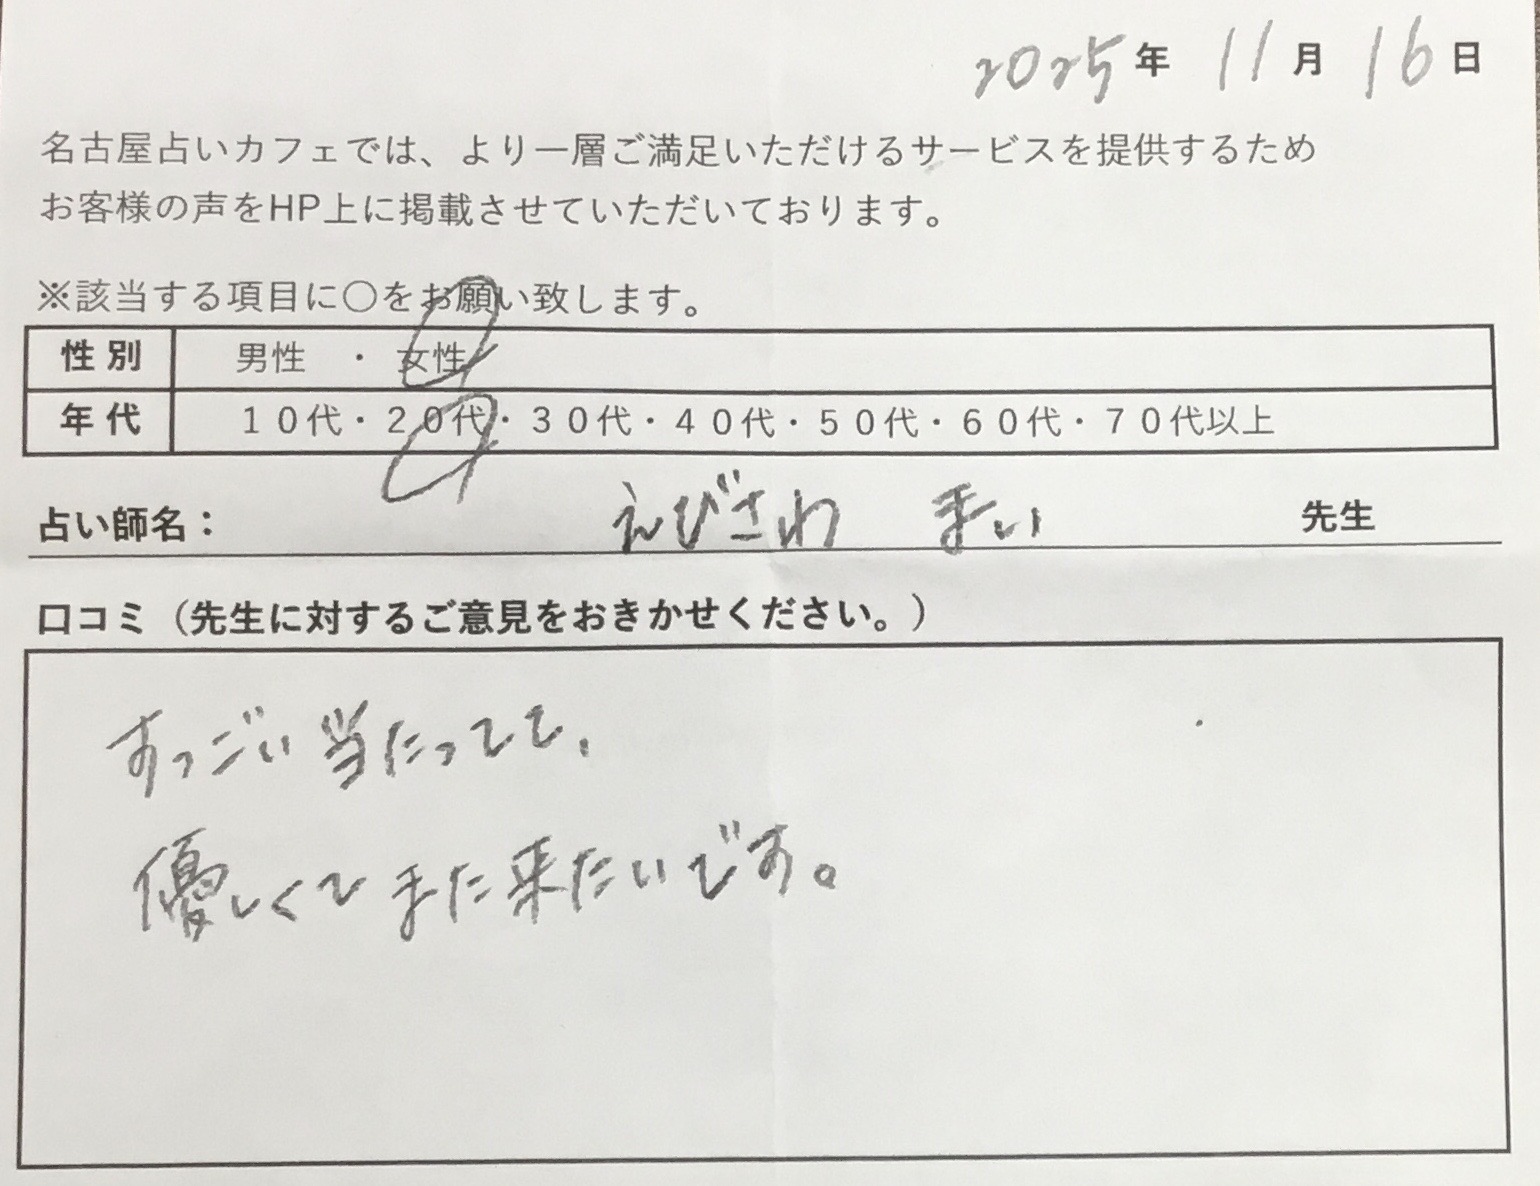 2025年 11月 16日
名古屋占いカフェでは、より一層ご満足いただけるサービスを提供するため
お客様の声をHP上に掲載させていただいております。
※該当する項目に〇をお願い致します。
性別 男性 ・ 女性
年代 10代・20代・30代・40代・50代・60代・70代以上
占い師名： えびさわ まい 先生
口コミ（先生に対するご意見をおきかせください。）
すっごい当たってて、
優しくてまた来たいです。